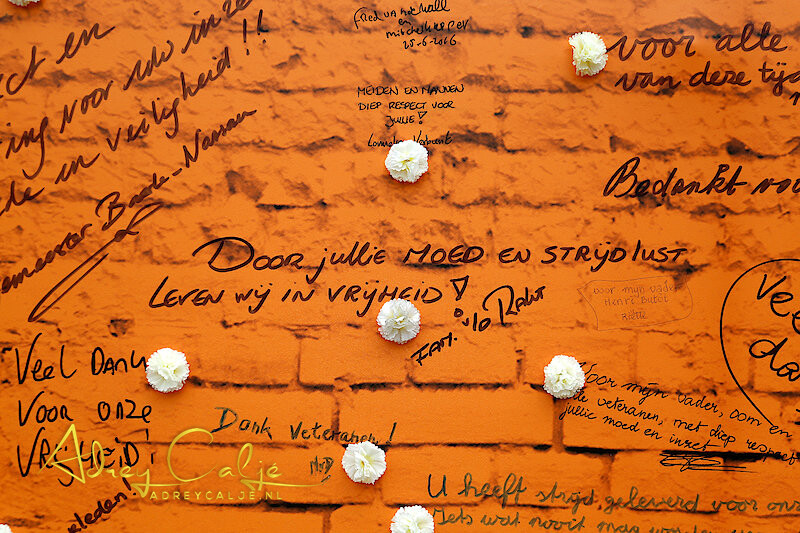 en
mitchell
25-6-2016
MEIDEN EN MANNEN
DIEP RESPECT VOOR
JULLIE!
ct en
ing voor uw inze
de in veiligheid!!
emeester Baarle-Nassau
voor alle
van deze tijd
Bedankt voo
DOOR jullie MOED EN STRIJDLUST
LEVEN WIJ IN VRIJHEID!
FAM. v/d
voor mijn vader
Henri
Veel
dan
Veel Dank
Voor onze
VRIJHEID!
leden!
Dank Veteranen!
Voor mijn vader, oom en
alle veteranen, met diep respect
jullie moed en inzet
U heeft strijd geleverd voor onz
Iets wat nooit mag
ADREY CALJÉ
ADREYCALJE.NL